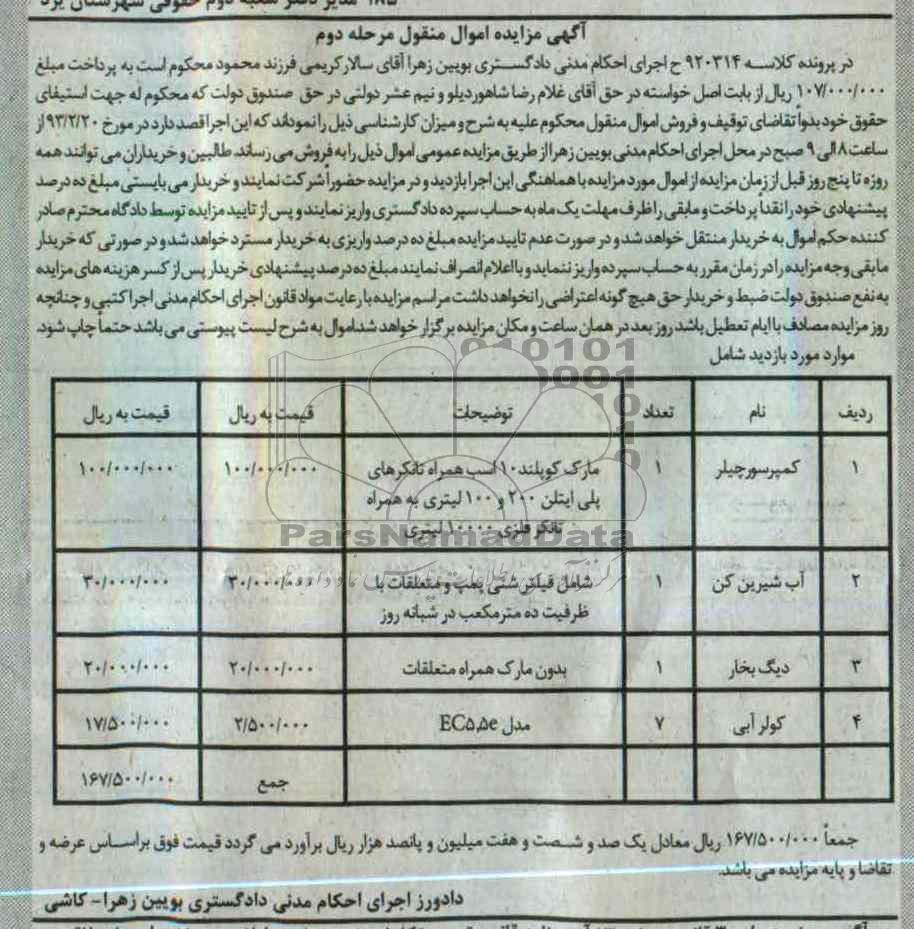 ۱۸۵ مدیر دفتر شعبه دوم حقوقی شهرستان یزد
آگهی مزایده اموال منقول مرحله دوم
در پرونده کلاسه ۹۲۰۳۱۴ ح اجرای احکام مدنی دادگستری بویین زهرا آقای سالار کریمی فرزند محمود محکوم است به پرداخت مبلغ
۱۰۷/۰۰۰/۰۰۰ ریال از بابت اصل خواسته در حق آقای غلام رضا شاهوردیلو و نیم عشر دولتی در حق صندوق دولت که محکوم له جهت استیفای
حقوق خود بدواً تقاضای توقیف و فروش اموال منقول محکوم علیه به شرح و میزان کارشناسی ذیل را نموداند که این اجرا قصد دارد در مورخ ۹۳/۲/۲۰ از
ساعت ۸ الی ۹ صبح در محل اجرای احکام مدنی بویین زهرا از طریق مزایده عمومی اموال ذیل را به فروش می رساند. طالبین و خریداران می توانند همه
روزه تا پنج روز قبل از زمان مزایده از اموال مورد مزایده با هماهنگی این اجرا بازدید و در مزایده حضوراً شرکت نمایند و خریدار می بایستی مبلغ ده درصد
پیشنهادی خود را نقداً پرداخت و مابقی را ظرف مهلت یک ماه به حساب سپرده دادگستری واریز نمایند و پس از تایید مزایده توسط دادگاه محترم صادر
کننده حکم اموال به خریدار منتقل خواهد شد و در صورت عدم تایید مزایده مبلغ ده درصد واریزی به خریدار مسترد خواهد شد و در صورتی که خریدار
مابقی وجه مزایده را در زمان مقرر به حساب سپرده واریز ننماید و یا اعلام انصراف نمایند مبلغ ده درصد پیشنهادی خریدار پس از کسر هزینه های مزایده
به نفع صندوق دولت ضبط و خریدار حق هیچ گونه اعتراضی را نخواهد داشت مراسم مزایده با رعایت مواد قانون اجرای احکام مدنی اجرا کتبی و چنانچه
روز مزایده مصادف با ایام تعطیل باشد روز بعد در همان ساعت و مکان مزایده برگزار خواهد شد. اموال به شرح لیست پیوستی می باشد حتماً چاپ شود.
موارد مورد بازدید شامل
ردیف نام تعداد توضیحات قیمت به ریال قیمت به ریال
۱ کمپرسورچیلر ۱ مارک کوپلند ۱۰ اسب همراه تانکرهای ۱۰۰/۰۰۰/۰۰۰ ۱۰۰/۰۰۰/۰۰۰
پلی ایتلن ۲۰۰ و ۱۰۰ لیتری به همراه
تانکر فلزی ۱۰۰۰۰ لیتری
ParsNamadData
۲ آب شیرین کن ۱ شامل فیلتر شنی پمپ و متعلقات با ۳۰/۰۰۰/۰۰۰ ۳۰/۰۰۰/۰۰۰
ظرفیت ده مترمکعب در شبانه روز
۳ دیگ بخار ۱ بدون مارک همراه متعلقات ۲۰/۰۰۰/۰۰۰ ۲۰/۰۰۰/۰۰۰
۴ کولر آبی ۷ مدل EC۵,۵e ۲/۵۰۰/۰۰۰ ۱۷/۵۰۰/۰۰۰
جمع ۱۶۷/۵۰۰/۰۰۰
جمعاً ۱۶۷/۵۰۰/۰۰۰ ریال معادل یک صد و شصت و هفت میلیون و پانصد هزار ریال برآورد می گردد قیمت فوق براساس عرضه و
تقاضا و پایه مزایده می باشد.
دادورز اجرای احکام مدنی دادگستری بویین زهرا- کاشی